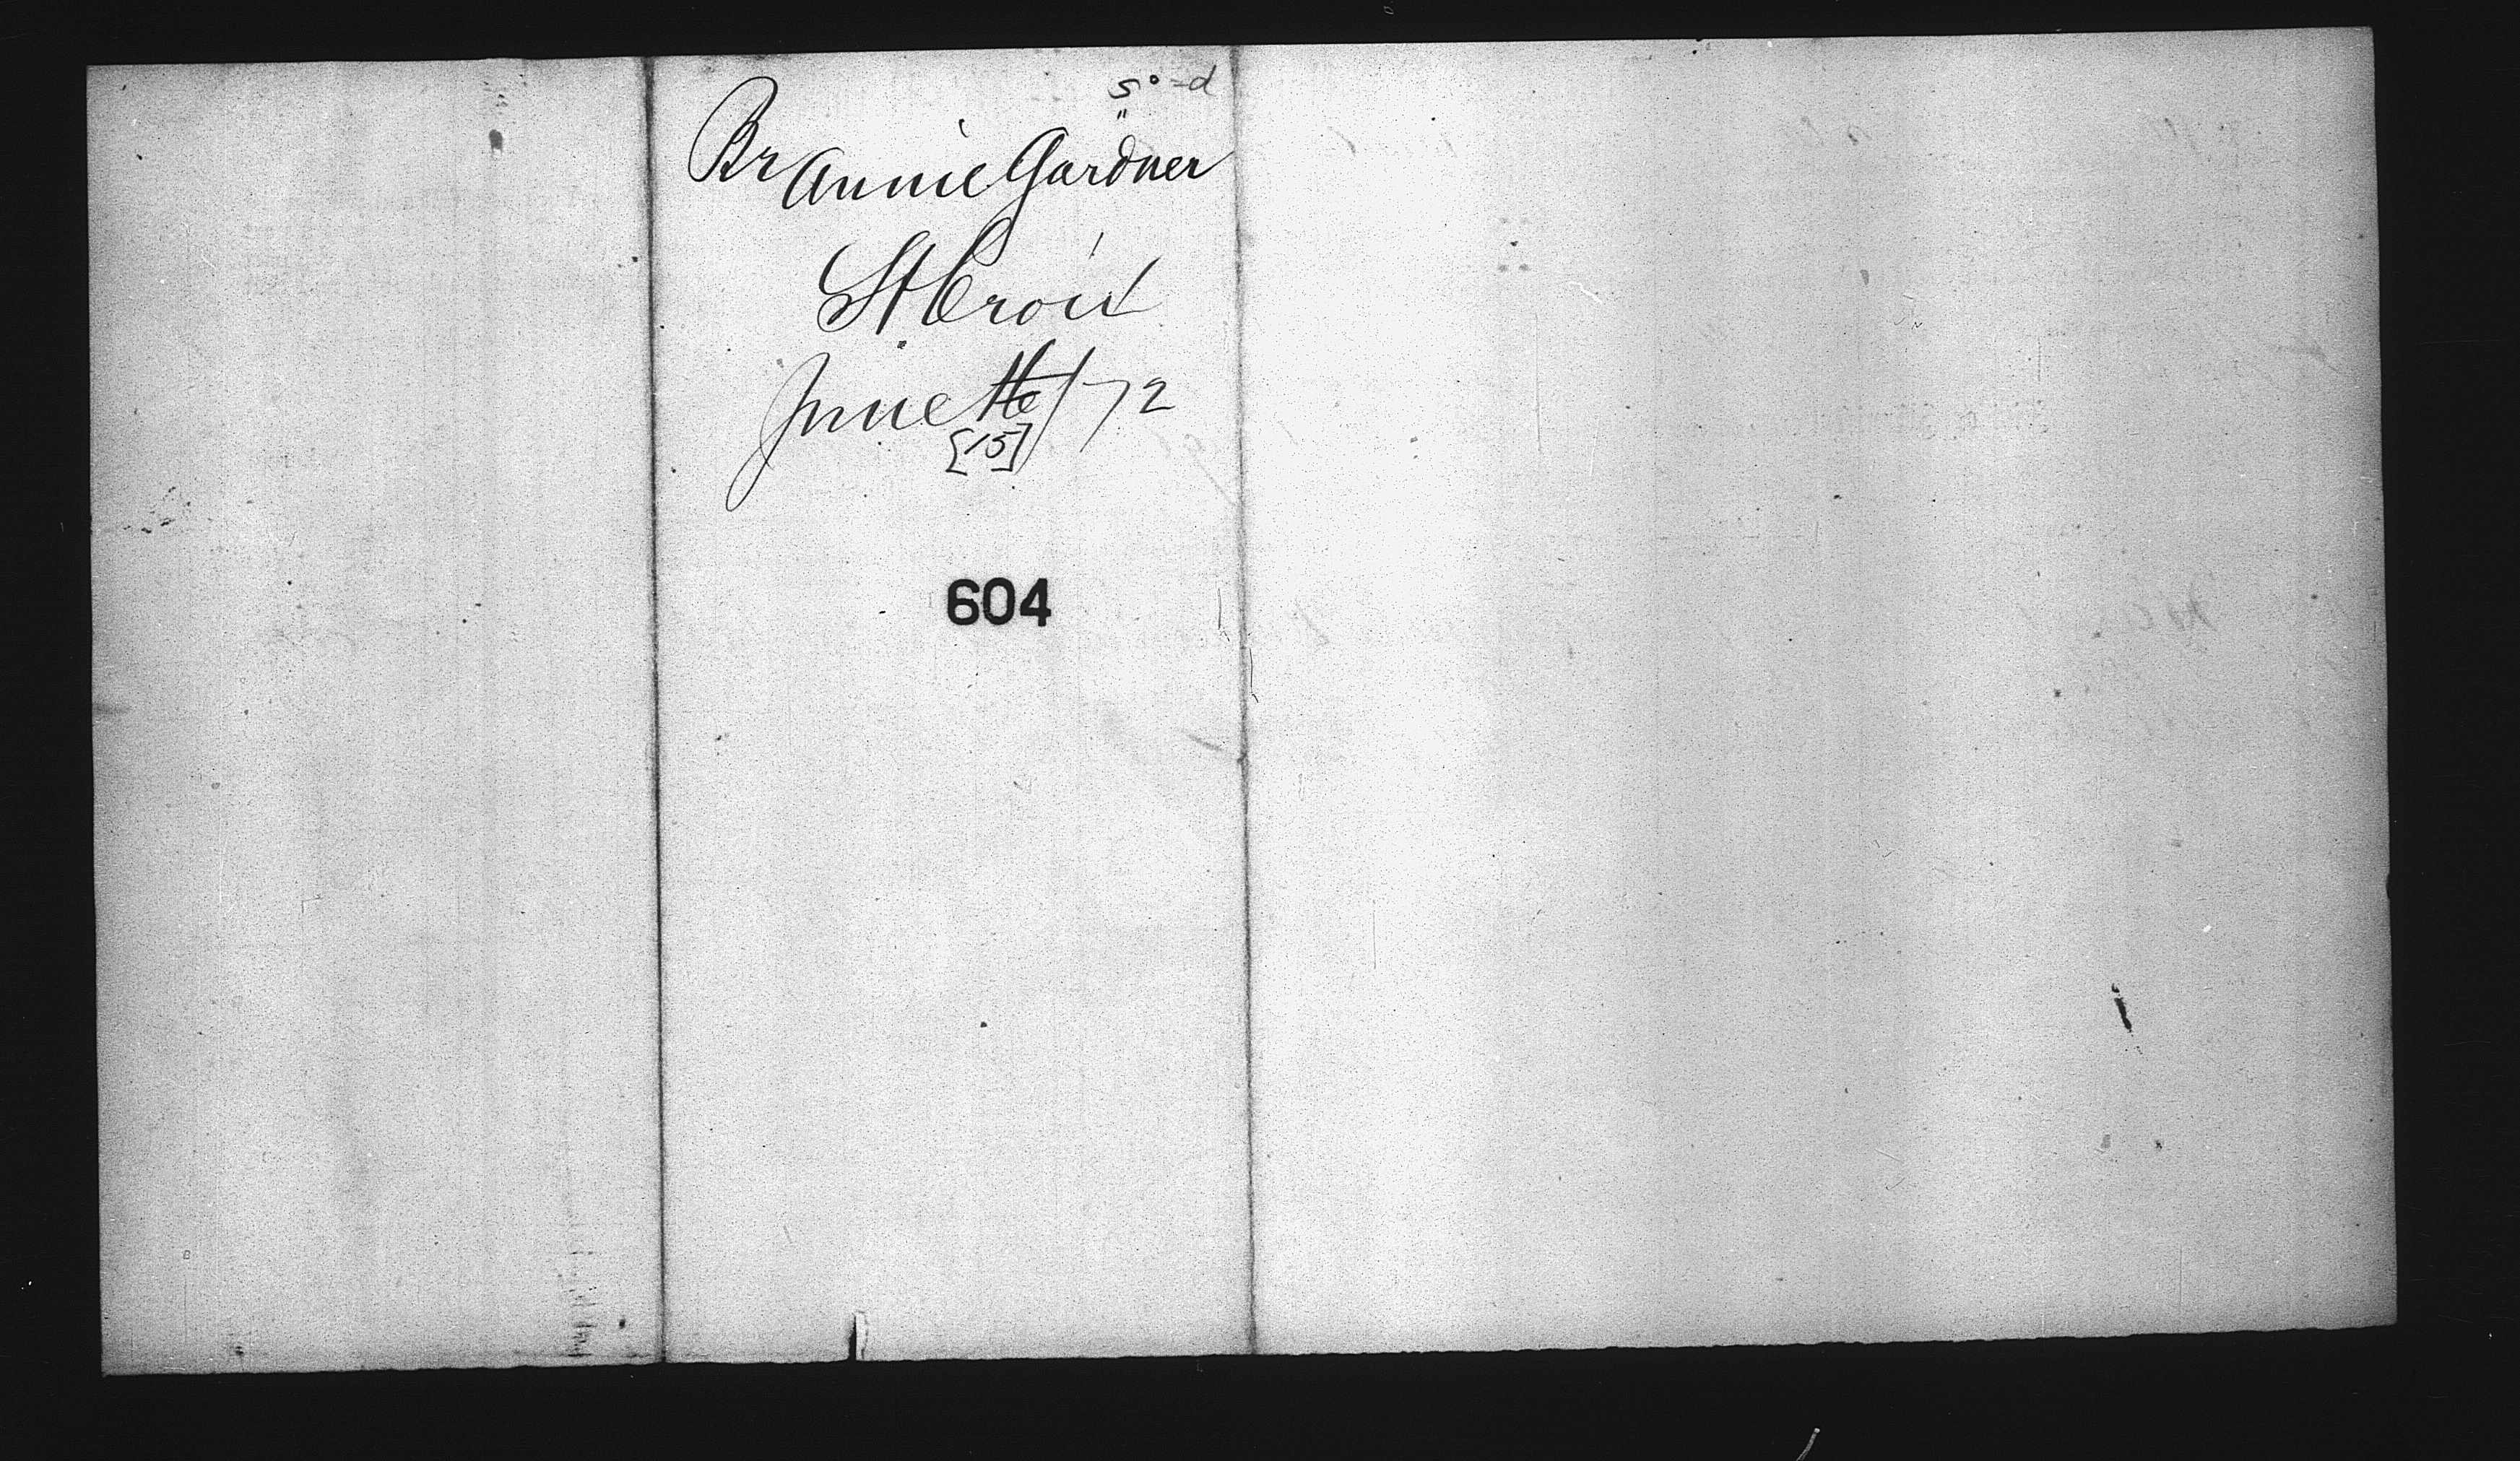 Br Annie Gardner
St Croix
June /72
[15]
604